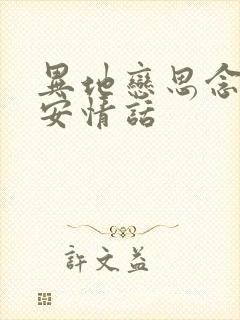 異地戀思念
安情話
許文益